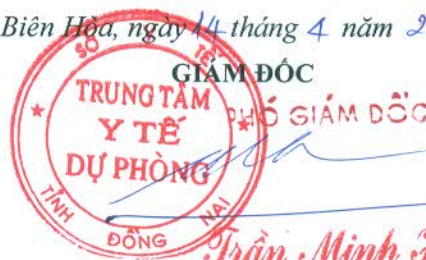 Biên Hòa, ngày 14 tháng 4 năm 2
GIÁM ĐỐC
PHÓ GIÁM ĐỐC
SỞ Y TẾ
TRUNG TÂM
Y TẾ
DỰ PHÒNG
TỈNH ĐỒNG NAI
Trần Minh